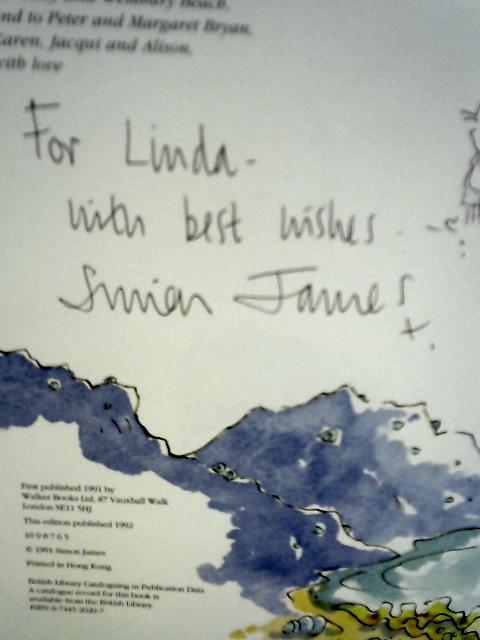 and Wembury Beach,
and to Peter and Margaret Bryan,
Karen, Jacqui and Alison,
with love
For Linda -
with best wishes.
Simon James
x.
First published 1991 by
Walker Books Ltd, 87 Vauxhall Walk
London SE11 5HJ
This edition published 1992
10 9 8 7 6 5
© 1991 Simon James
Printed in Hong Kong
British Library Cataloguing in Publication Data
A catalogue record for this book is
available from the British Library.
ISBN 0-7445-2020-7